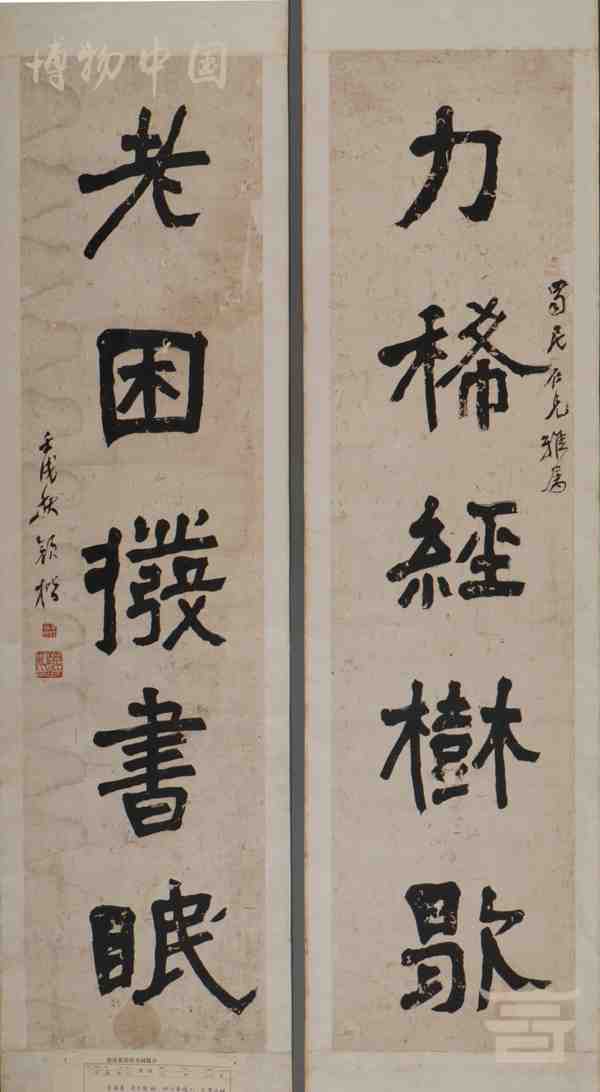 博物中国
力稀經樹歇
蜀民仁兄雅屬
老困撥書眠
壬戌秋 顏楷